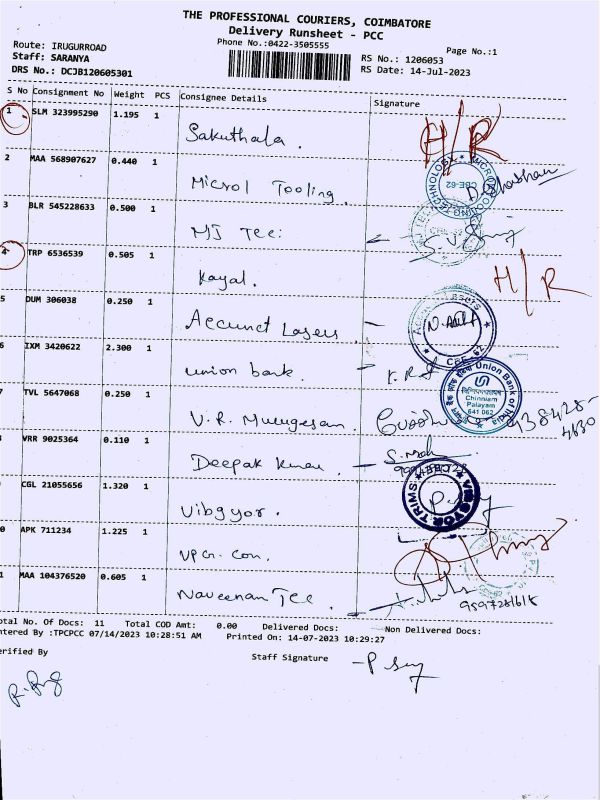 THE PROFESSIONAL COURIERS, COIMBATORE
Delivery Runsheet - PCC
Phone No.:0422-3505555
Page No.:1
Route: IRUGURROAD
Staff: SARANYA
RS No.: 1206053
DRS No.: DCJB120605301
RS Date: 14-Jul-2023
S No Consignment No Weight PCS Consignee Details Signature
1 SLM 323995290 1.195 1
Sakuthala. H/R
2 MAA 568907627 0.440 1
Microl Tooling.
CBE-62
3 BLR 545228633 0.500 1
MJ Tec:
4 TRP 6536539 0.505 1
Kayal. H/R
5 DUM 306038 0.250 1
Accunct Lasers
CBE-62
6 IXM 3420622 2.300 1
union bank.
Union Bank of India
Chinniam
Palayam
641 062
7 TVL 5647068 0.250 1
V.R. Murugesan
938428-
4630
8 VRR 9025364 0.110 1
Deepak kumar
9 CGL 21055656 1.320 1
Vibgyor.
TRIMS
0 APK 711234 1.225 1
VPG. Con.
1 MAA 104376520 0.605 1
Naveenam Tec
otal No. Of Docs: 11 Total COD Amt: 0.00 Delivered Docs: Non Delivered Docs:
ntered By :TPCPCC 07/14/2023 10:28:51 AM Printed On: 14-07-2023 10:29:27
erified By
Staff Signature